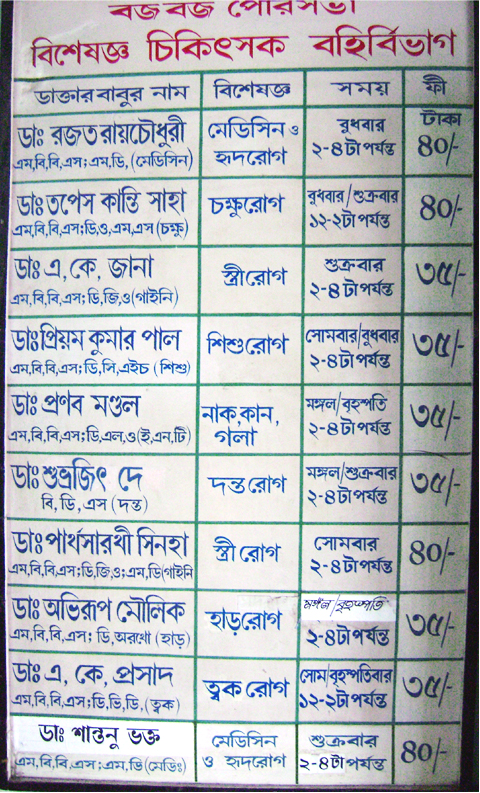 বজবজ পৌরসভা
বিশেষজ্ঞ চিকিৎসক বহির্বিভাগ
ডাক্তারবাবুর নাম বিশেষজ্ঞ সময় ফী
টাকা
ডাঃ রজত রায়চৌধুরী মেডিসিন ও বুধবার ৪০/-
এম,বি,বি,এস; এম,ডি, (মেডিসিন) হৃদরোগ ২-৪টা পর্যন্ত
ডাঃ তপেস কান্তি সাহা চক্ষুরোগ বুধবার/শুক্রবার ৪০/-
এম,বি,বি,এস;ডি,ও,এম,এস (চক্ষু) ১২-২টা পর্যন্ত
ডাঃ এ, কে, জানা স্ত্রীরোগ শুক্রবার ৩৫/-
এম,বি,বি,এস; ডি,জি,ও(গাইনি) ২-৪টা পর্যন্ত
ডাঃ প্রিয়ম কুমার পাল শিশুরোগ সোমবার/বুধবার ৩৫/-
এম,বি,বি,এস; ডি,সি,এইচ (শিশু) ২-৪টা পর্যন্ত
ডাঃ প্রণব মণ্ডল নাক,কান, মঙ্গল/বৃহস্পতি ৩৫/-
এম,বি,বি,এস;ডি,এল,ও(ই,এন,টি) গলা ২-৪টা পর্যন্ত
ডাঃ শুভ্রজিৎ দে দন্তরোগ মঙ্গল/শুক্রবার ৩৫/-
বি,ডি,এস (দন্ত) ২-৪টা পর্যন্ত
ডাঃ পার্থসারথী সিনহা স্ত্রী রোগ সোমবার ৪০/-
এম,বি,বি,এস;ডি,জি,ও;এম,ডি(গাইনি ২-৪টা পর্যন্ত
ডাঃ অভিরূপ মৌলিক হাড়রোগ মঙ্গল/বৃহস্পতি ৩৫/-
এম,বি,বি,এস; ডি,অরথো (হাড়) ২-৪টা পর্যন্ত
ডাঃ এ, কে, প্রসাদ ত্বক রোগ সোম/বৃহস্পতিবার ৩৫/-
এম,বি,বি,এস;ডি,ভি,ডি,(ত্বক) ১২-২টা পর্যন্ত
ডাঃ শান্তনু ভক্ত মেডিসিন শুক্রবার ৪০/-
এম,বি,বি,এস;এম,ডি(মেডিঃ) ও হৃদরোগ ২-৪টা পর্যন্ত